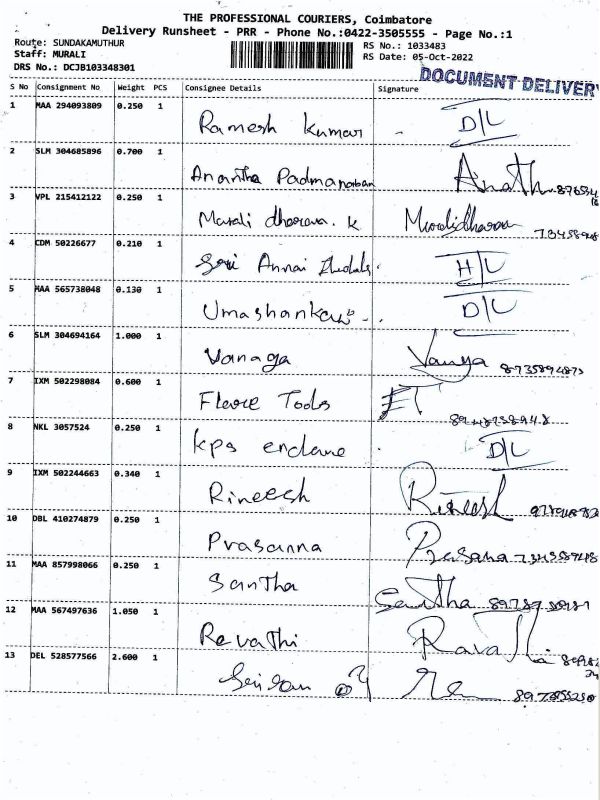 THE PROFESSIONAL COURIERS, Coimbatore
Delivery Runsheet - PRR - Phone No.:0422-3505555 - Page No.:1
Route: SUNDAKAMUTHUR RS No.: 1033483
Staff: MURALI RS Date: 05-Oct-2022
DRS No.: DCJB103348301
DOCUMENT DELIVERY
S No Consignment No Weight PCS Consignee Details Signature
1 MAA 294093809 0.250 1 Ramesh Kumar D/L
2 SLM 304685896 0.700 1 Anantha Padmanaban
3 VPL 215412122 0.250 1 Murali dharara. K Muralidharan
4 CDM 50226677 0.210 1 Sri Annai H/L
5 MAA 565738048 0.130 1 Umashankar D/L
6 SLM 304694164 1.000 1 Vanaga Vanga
7 IXM 502298084 0.600 1 Tools FT
8 NKL 3057524 0.250 1 kps enclave D/L
9 IXM 502244663 0.340 1 Rineesh Rineesh
10 DBL 410274879 0.250 1 Prasanna Prasana
11 MAA 857998066 0.250 1 Santha Santha
12 MAA 567497636 1.050 1 Revathi
13 DEL 528577566 2.600 1